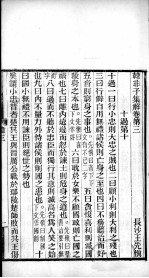 韓非子集解卷第三
長沙王先慎
十過第十
十過一曰行小忠則大忠之賊也二曰顧小利則大利之殘也
三曰行僻自用無禮諸侯則亡身之至也四曰不務聽治而好
五音則窮身之事也五曰貪愎喜利則滅國
殺身之本也六曰耽於女樂不顧國政則亡國之
禍也七曰離內遠遊而忽於諫士則危身之道也
八曰過而不聽於忠臣而獨行其意則滅高名爲人笑之始
也九曰內不量力外恃諸侯則削國之患也十
曰國小無禮不用諫臣則絕世之勢也
奚謂小忠昔者楚共王與晉厲公戰於鄢陵楚師敗而共王